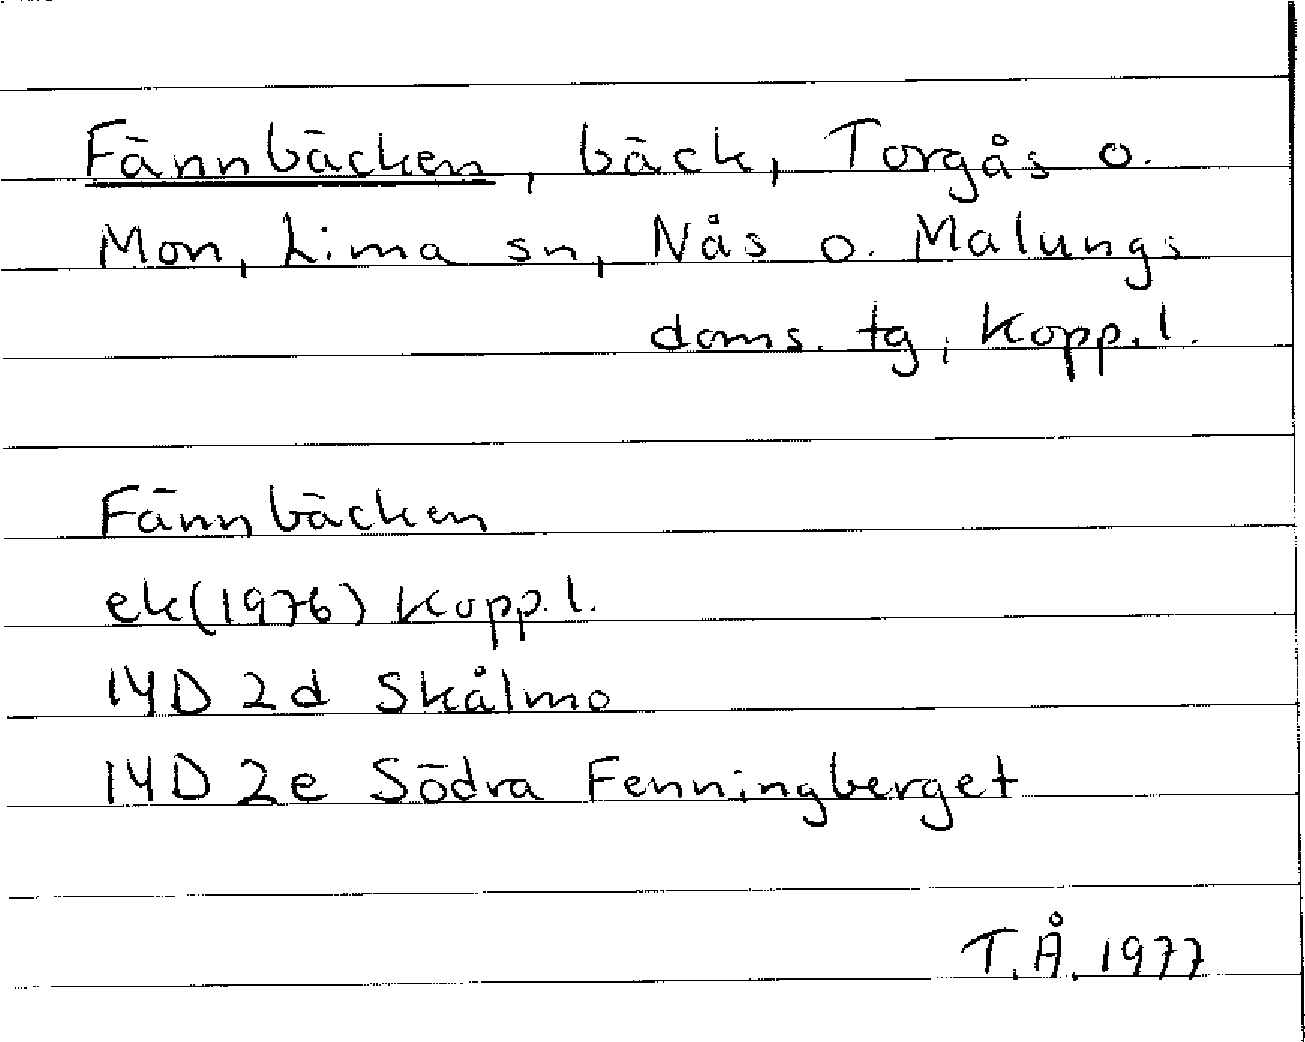 Fännbäcken, bäck, Torgås o.
Mon, Lima sn, Nås o. Malungs
doms. tg, Kopp. l.
Fännbäcken
ek(1976) Kopp. l.
14D 2d Skålmo
14D 2e Södra Fenningberget
T.Å. 1977